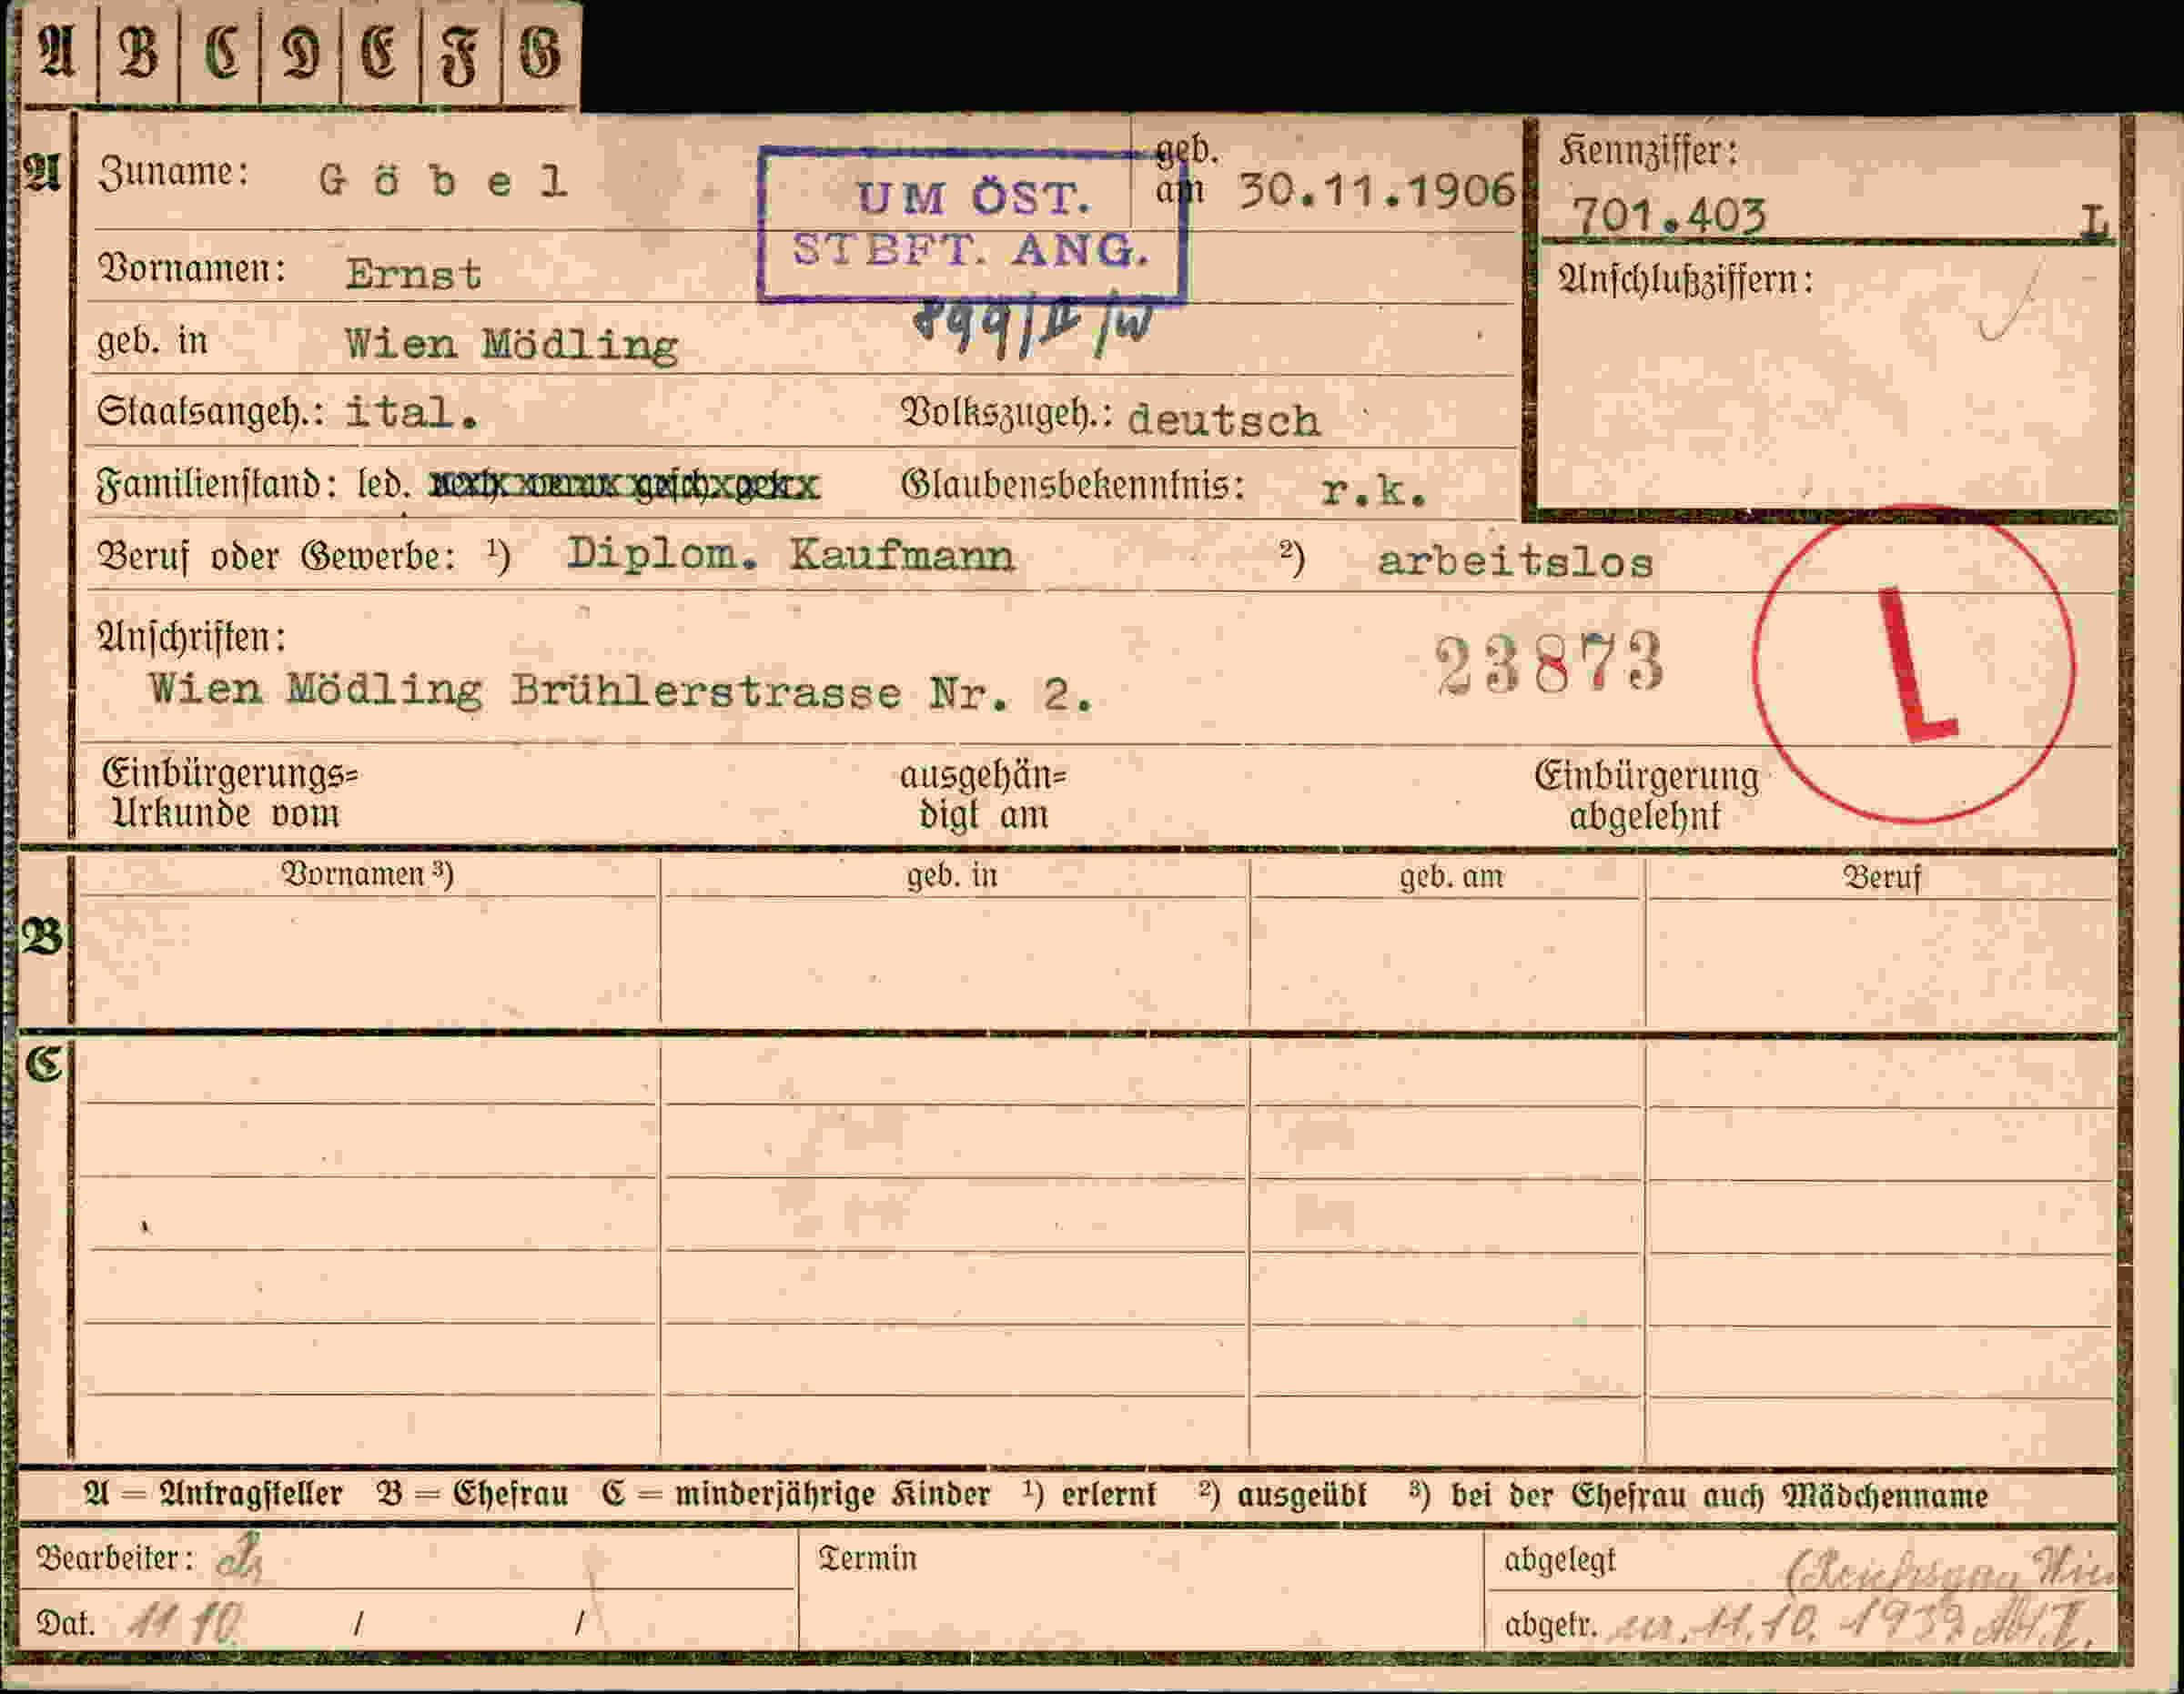 A B C D E F G
A
Zuname: Göbel
UM ÖST.
STBFT. ANG.
geb. am 30.11.1906
Kennziffer:
701.403 L
Vornamen: Ernst
Anschlußziffern:
899/II/W
geb. in Wien Mödling
Staatsangeh.: ital. Volkszugeh.: deutsch
Familienstand: led. Glaubensbekenntnis: r.k.
Beruf oder Gewerbe: ¹) Diplom. Kaufmann ²) arbeitslos
Anschriften:
23873
L
Wien Mödling Brühlerstrasse Nr. 2.
Einbürgerungs= ausgehän= Einbürgerung
Urkunde vom digt am abgelehnt
B
Vornamen ³) geb. in geb. am Beruf
C
A = Antragsteller B = Ehefrau C = minderjährige Kinder ¹) erlernt ²) ausgeübt ³) bei der Ehefrau auch Mädchenname
Bearbeiter: Termin abgelegt (Reichsgau Wien
Dat. 11 10. / / abgetr. 11.10.1939 Abt. I.